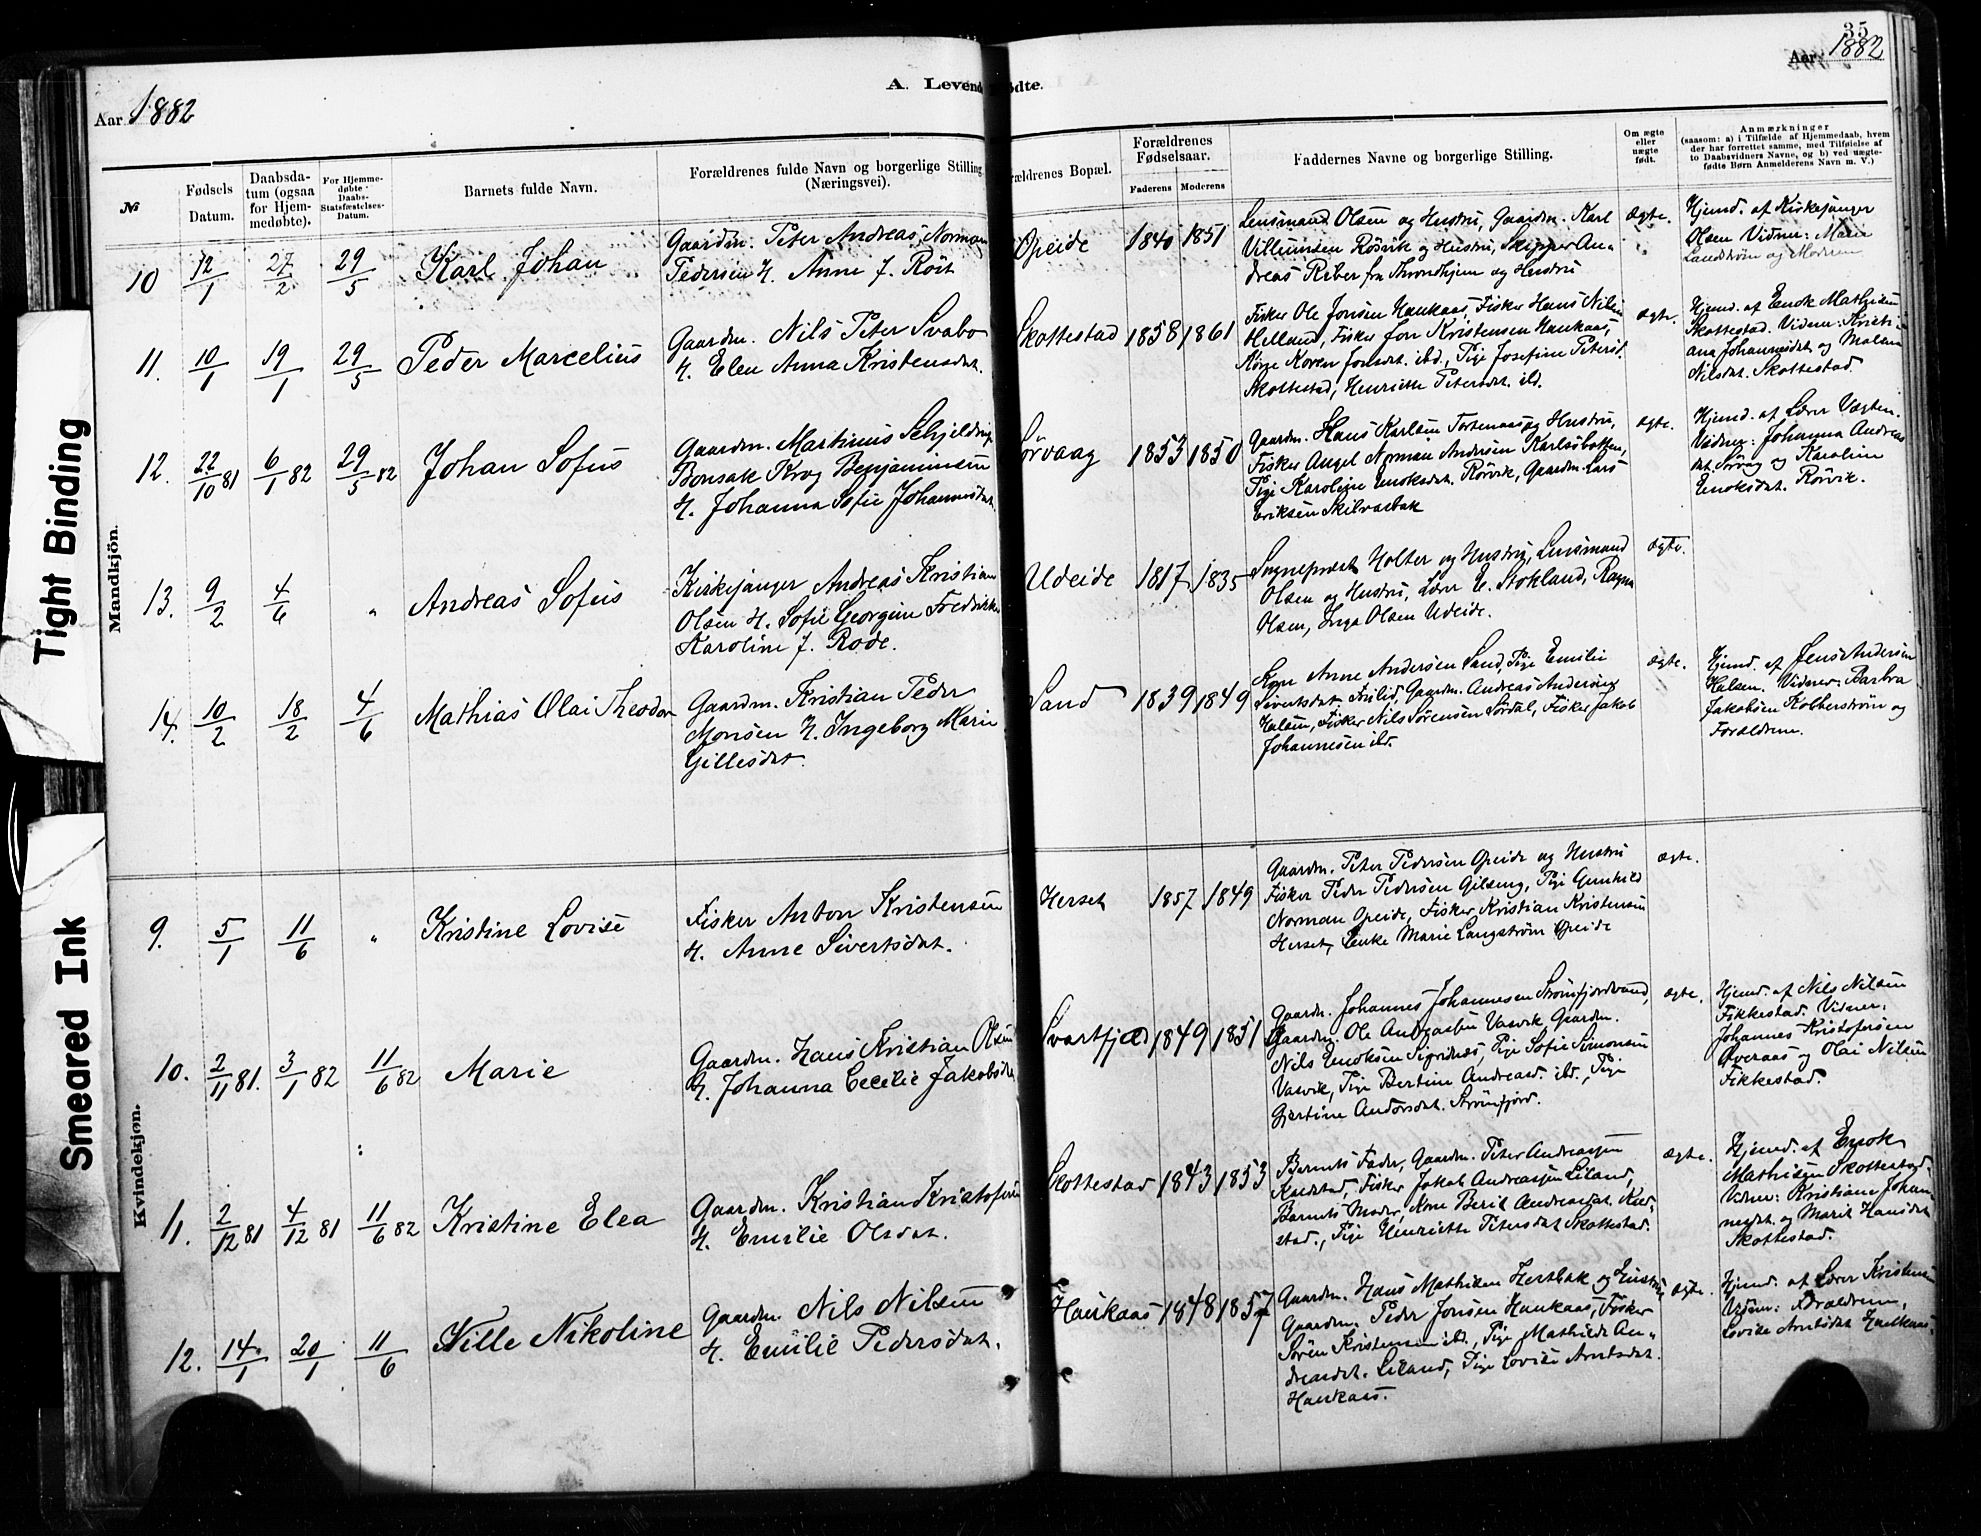 35
A. Levend ødte.
Aar 1882
Aar 1882
№
Fødsels Datum.
Daabsdatum (ogsaa for Hjemmedøbte).
For Hjemmedøbte Daabs-Statsfæstelses-Datum.
Barnets fulde Navn.
Forældrenes fulde Navn og borgerlige Stilling (Næringsvei).
rældrenes Bopæl.
Forældrenes Fødselsaar.
Faderens
Moderens
Faddernes Navne og borgerlige Stilling.
Om ægte eller uægte født.
Anmærkninger
(saasom: a) i Tilfælde af Hjemmedaab, hvem
der har forrettet samme, med Tilføielse af
to Daabsvidners Navne, og b) ved uægte-
fødte Børn Anmelderens Navn m. V.)
Tight Binding
Smeared Ink
Mandkjön.
10 12/1 27/2 29/5 Karl Johan
Gaardm. Peter Andreas Norman
Pedersen H. Anne f. Röst
Opeide 1840 1851
Lensmand Olsen og Hustru, Gaardm. Karl
Villumsen Rörvik og Hustru, Skipper An-
dreas Riber fra Throndhjem og Hustru
Ægte.
Hjemd. af Kirkesanger
Olsen Vidner: Maria
Landström og Moderen
11. 10/1 19/1 29/5 Peder Marcelius
Gaardm. Nils Peter Svabo
H. Elen Anna Kristensdat.
Skottestad 1858 1861
Fisker Ole Jonsen Haukaas, Fisker Hans Nilsen
Helland, Fisker Jon Kristensen Haukaas,
Kone Karen Jonsdat. ibd., Pige Josefine Petersd.
Skottestad, Henriette Petersdat. ibd.
ægte.
Hjemd. af Enok Mathisen
Skottestad. Vidner: Kristi
ana Johannesdat og Malene
Nilsdat. Skottestad.
12. 22/10 81 6/1 82 29/5 82 Johan Sofus
Gaardm. Martinus Schjeldrup
Bonsak Krog Benjaminsen
H. Johanna Sofie Johannesdat.
Sörvaag 1853 1850
Gaardm. Hans Karlsen Fortenaas og Hustru,
Fisker Angel Norman Andersen Karlsbakken,
Pige Karoline Enoksdat. Rörvik, Gaardm. Lars
Eriksen Skilvasbak
ægte.
Hjemd. af Lærer Vegten.
Vidner: Johanna Andreas
dat Sörvaag og Karoline
Enoksdat. Rörvik.
13. 9/2 4/6 „ Andreas Sofus
Kirkesanger Andreas Kristian
Olsen H. Sofie Georgine Fredrikke
Karoline f. Rode.
Udeide 1817 1835
Sogneprest Holter og Hustru, Lensmand
Olsen og Hustru, Lærer E. Stokland, Ragna
Olsen, Inga Olsen Udeide.
ægte.
14. 10/2 18/2 4/6 Mathias Olai Theodor
Gaardm. Kristian Peder
Monsen H. Ingeborg Marie
Gillesdat.
Sand 1839 1849
Kone Anne Andersen Sand, Pige Emilie
Sivertsdat. Inlid, Gaardm. Andreas Andersen
Halsen, Fisker Nils Sörensen Sördal, Fisker Jakob
Johannesen ibd.
ægte.
Hjemd. af Jens Andersen
Halsen. Vidner: Barbra
Jakobsen Kobberström og
Forældrene.
Kvindekjön.
9. 5/1 11/6 „ Kristine Lovise
Fisker Anton Kristensen
H. Anne Sivertsdat.
Herset 1857 1849
Gaardm. Peter Pedersen Opeide og Hustru
Fisker Peder Pedersen Gilseng, Pige Gunhild
Norman Opeide, Fisker Kristian Kristensen
Herset, Enke Marie Langström Opeide
ægte.
10. 2/11 81. 3/1 82 11/6 82 Marie
Gaardm. Hans Kristian Olsen
H. Johanna Cecilie Jakobsdat
Svartfjeld 1849 1851
Gaardm. Johannes Johannesen Strömfjordvand,
Gaardm. Ole Andreassen Vasvik Gaardm.
Nils Enoksen Sigridnes, Pige Sofie Simonsen
Vasvik, Pige Bertine Andreasd. ibd., Pige
Gjertine Andorsdat. Strömfjord.
ægte.
Hjemd. af Nils Nilsen
Fikkestad. Vidner:
Johannes Kristofersen
Överaas og Olai Nilsen
Fikkestad.
11. 2/12 81 4/12 81 11/6 82 Kristine Elea
Gaardm. Kristian Kristofersen
H. Emilie Olsdat.
Skottestad 1843 1853
Barnets Fader, Gaardm. Peter Andreassen
Kaldstad, Fisker Jakob Andreassen Leland,
Barnets Moder, Kone Berit Andreasdat. Kald-
stad., Pige Henriette Petersdat Skottestad.
ægte.
Hjemd. af Enok
Mathisen Skottestad.
Vidner: Kristiane Johan
nesdt. og Marit Hansdat
Skottestad.
12. 14/1 20/1 11/6 Nille Nikoline
Gaardm. Nils Nilsen
H. Emilie Pedersdat.
Haukaas 1848 1857
Gaardm. Hans Mathisen Hestbak og Hustru
Gaardm. Peder Jonsen Haukaas, Fisker
Sören Kristensen ibd., Pige Mathilde An-
dreasdat. Leland, Pige Lovise Arntsdat.
Haukaas.
ægte.
Hjemd. af Lærer Kristensen
Vidner: Forældrene,
Lovise Arntsdat Haukaas.